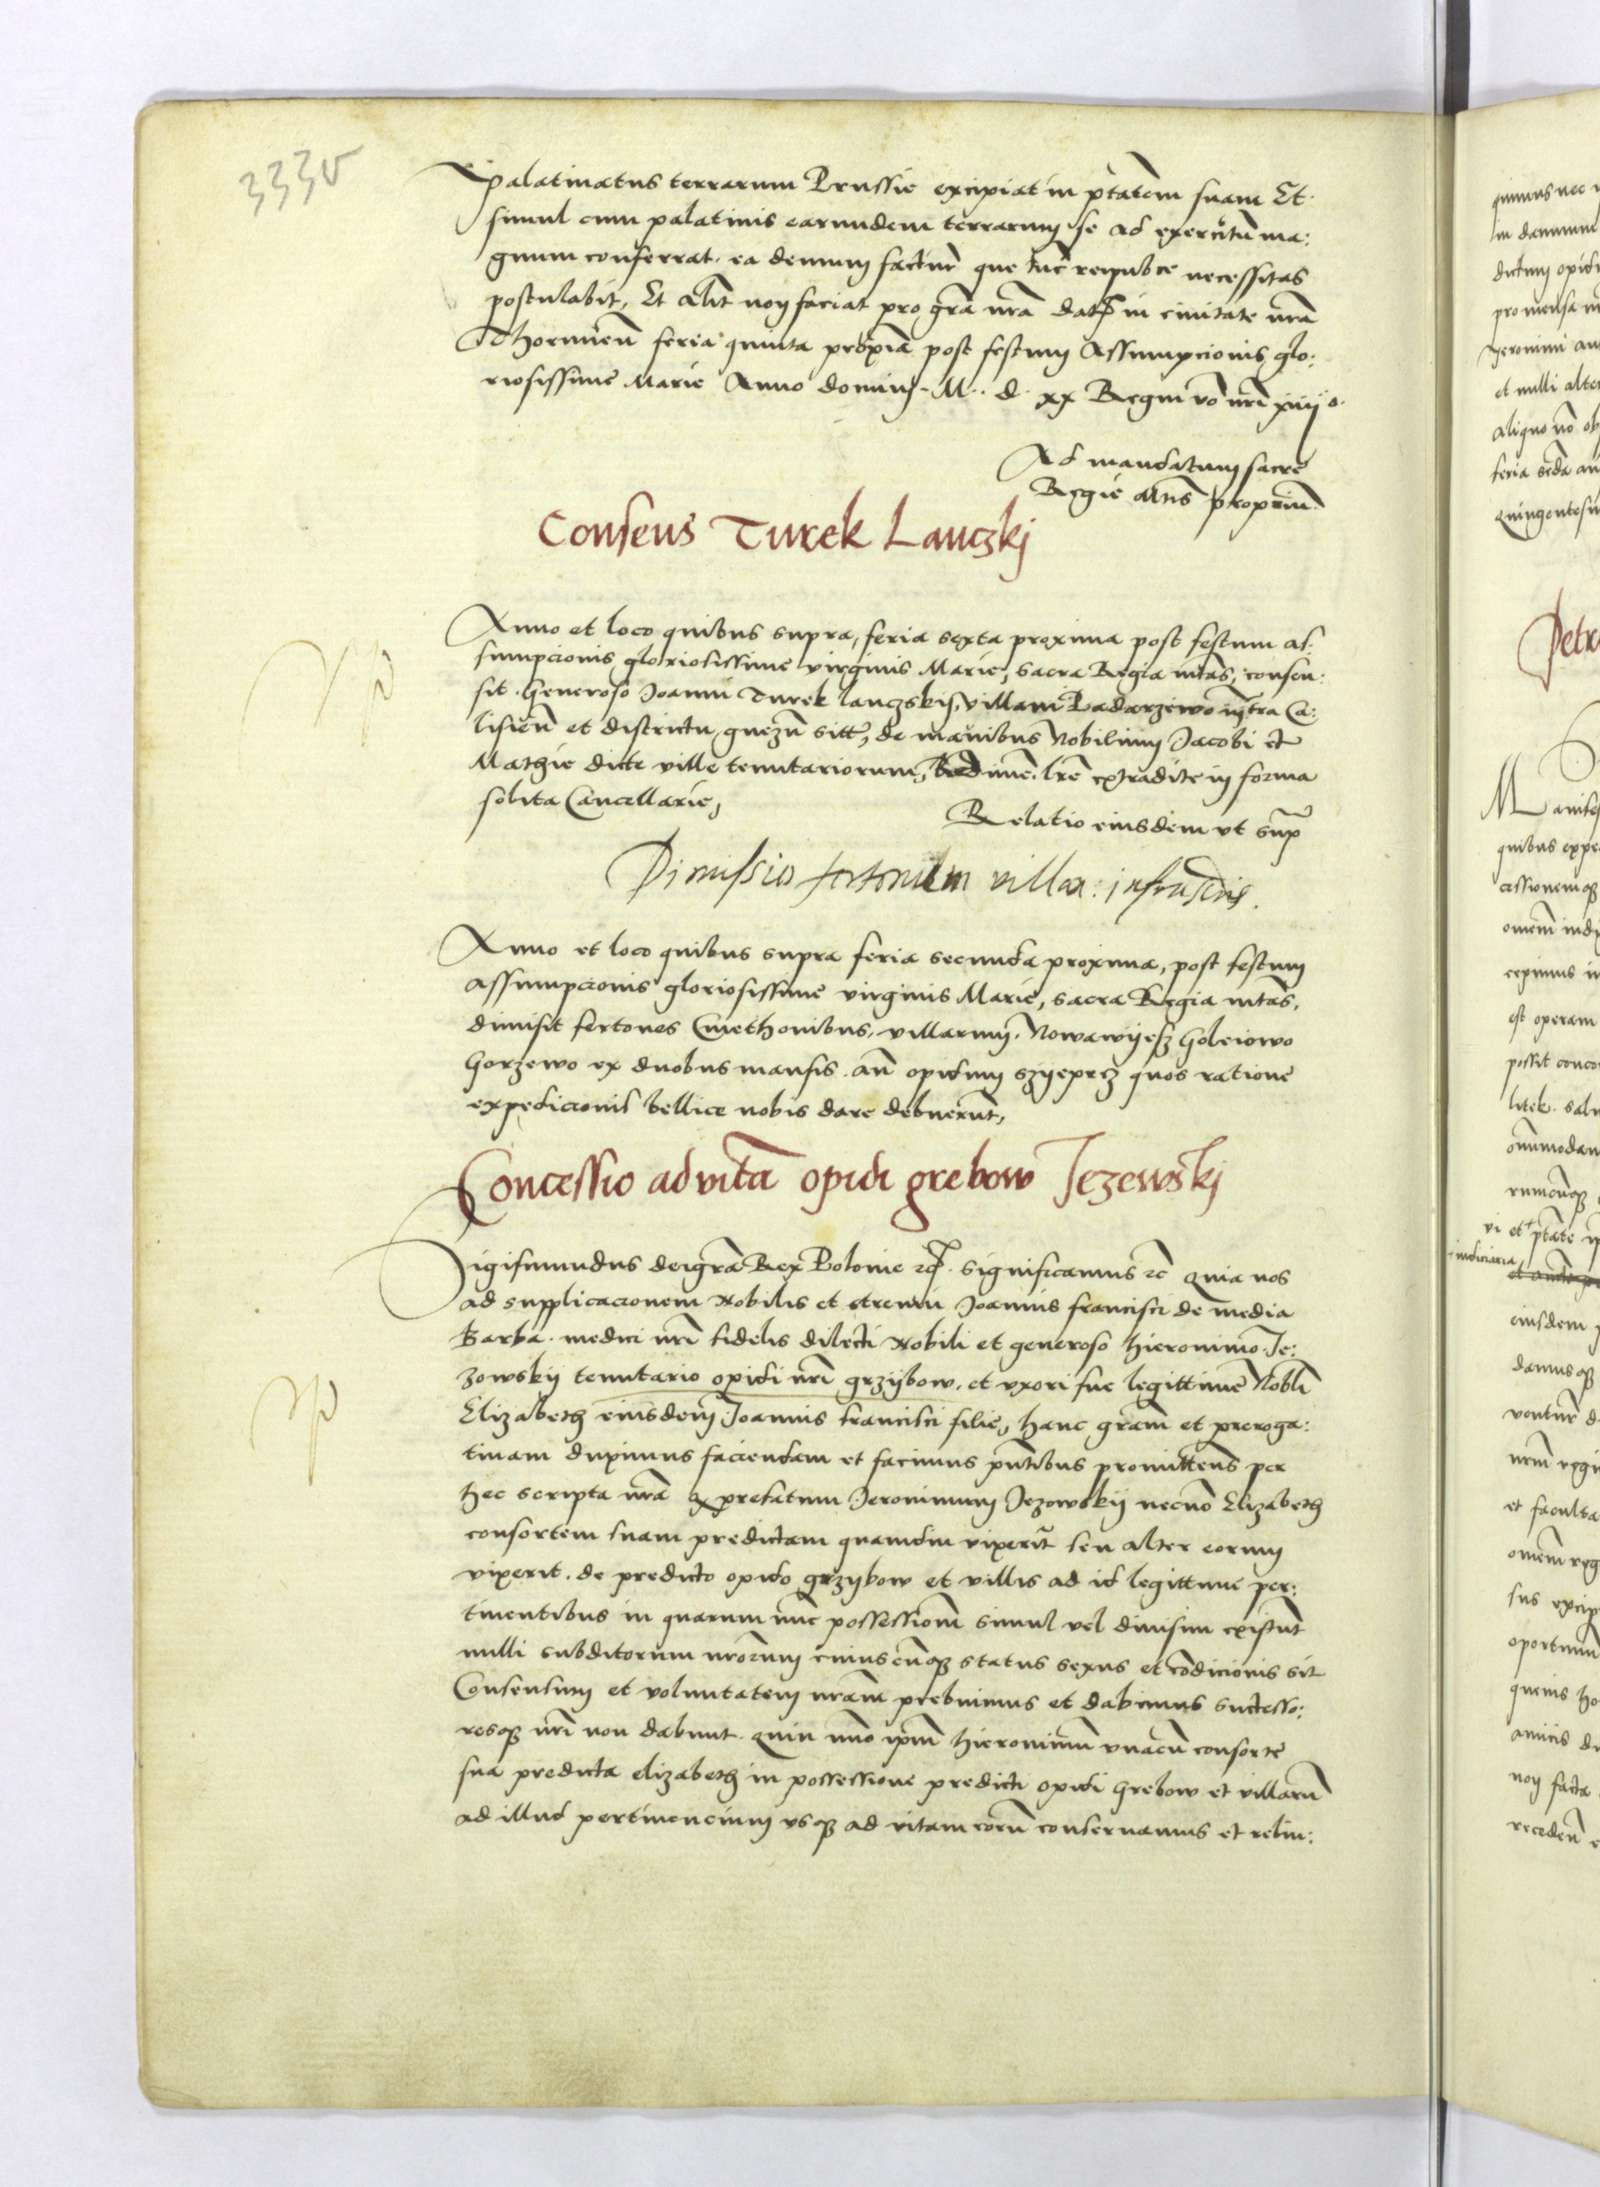 333v
palatinatus terrarum Prussie excipiat in ptatem suam Et
simul cum palatinis earundem terrarum se ad exercitum ma:
gnum conferrat. ea demum factur que tuc reipubce necessitas
postulabit, Et alit non faciat pro gra nra datz in civitate nra
Thorunien feria quinta proxia post festum Assumpcionis glo:
riosissime Marie Anno domini M. d. xx Regni vo nri xiiij o.
Ad mandatum sacre
Regie Mtis propriu
Consens Turek Lanczkj
Anno et loco quibus supra, feria sexta proxima post festum as:
sumpcionis gloriosissime virginis Marie, sacra Regia mtas, consen:
sit. Generoso Joanni Turek lanczskij, villam Badarzewo intra Ca:
lisien et districtu gnezn sitt, de manibus Nobilium Jacobi et
Mathie dicte ville tenutariorum, Redime. lre extradite in forma
solita Cancellarie,
Relatio eiusdem vt sup
Dimissio fertonum villa: infrascris.
Anno et loco quibus supra feria secunda proxima, post festum
assumpcionis gloriosissime virginis Marie, sacra Regia mtas,
dimisit fertones Cmethonibus, villarum, Nowawijesz Goleiowo
Gorzewo ex duobus mansis. an opidum szyeprcz quos ratione
expedicionis bellice nobis dare debuerunt,
Concessio ad vita opidi grebow Jezewskj
Sigismundus dei gra Rex Polonie etc. significamus etc Quia nos
ad supplicacionem Nobilis et strenui Joannis francisci de media
Barba. medici nri fidelis dilecti Nobili et generoso Hieronimo Je:
zowskij tenutario opidi nri grzijbow. et vxori sue legittime Nobli
Elizabeth eiusdem Joannis francisci filie, hanc gram et preroga:
tiuam duximus faciendam et facimus pntibus promittens per
hec scripta nra q prefatum Jeronimum Jezowskij necno Elizabeth
consortem suam predictam quamdiu vixerit seu alter eorum
vixerit. de predicto opido grzijbow et villis ad id legittime per:
tinentibus in quarum nuc possessione simul vel diuisim existunt
nulli subditorum nrorum cuiuscunqz status sexus et condicionis sit
Consensum et voluntatem nram prebuimus et dabimus successo:
resqz nri non dabunt. Quin imo ipm Hieronimu vnacu consorte
sua predicta elizabeth in possessione predicti opidi Grebow et villaru
ad illud pertinencium vsqz ad vitam coru conseruamus et relin: